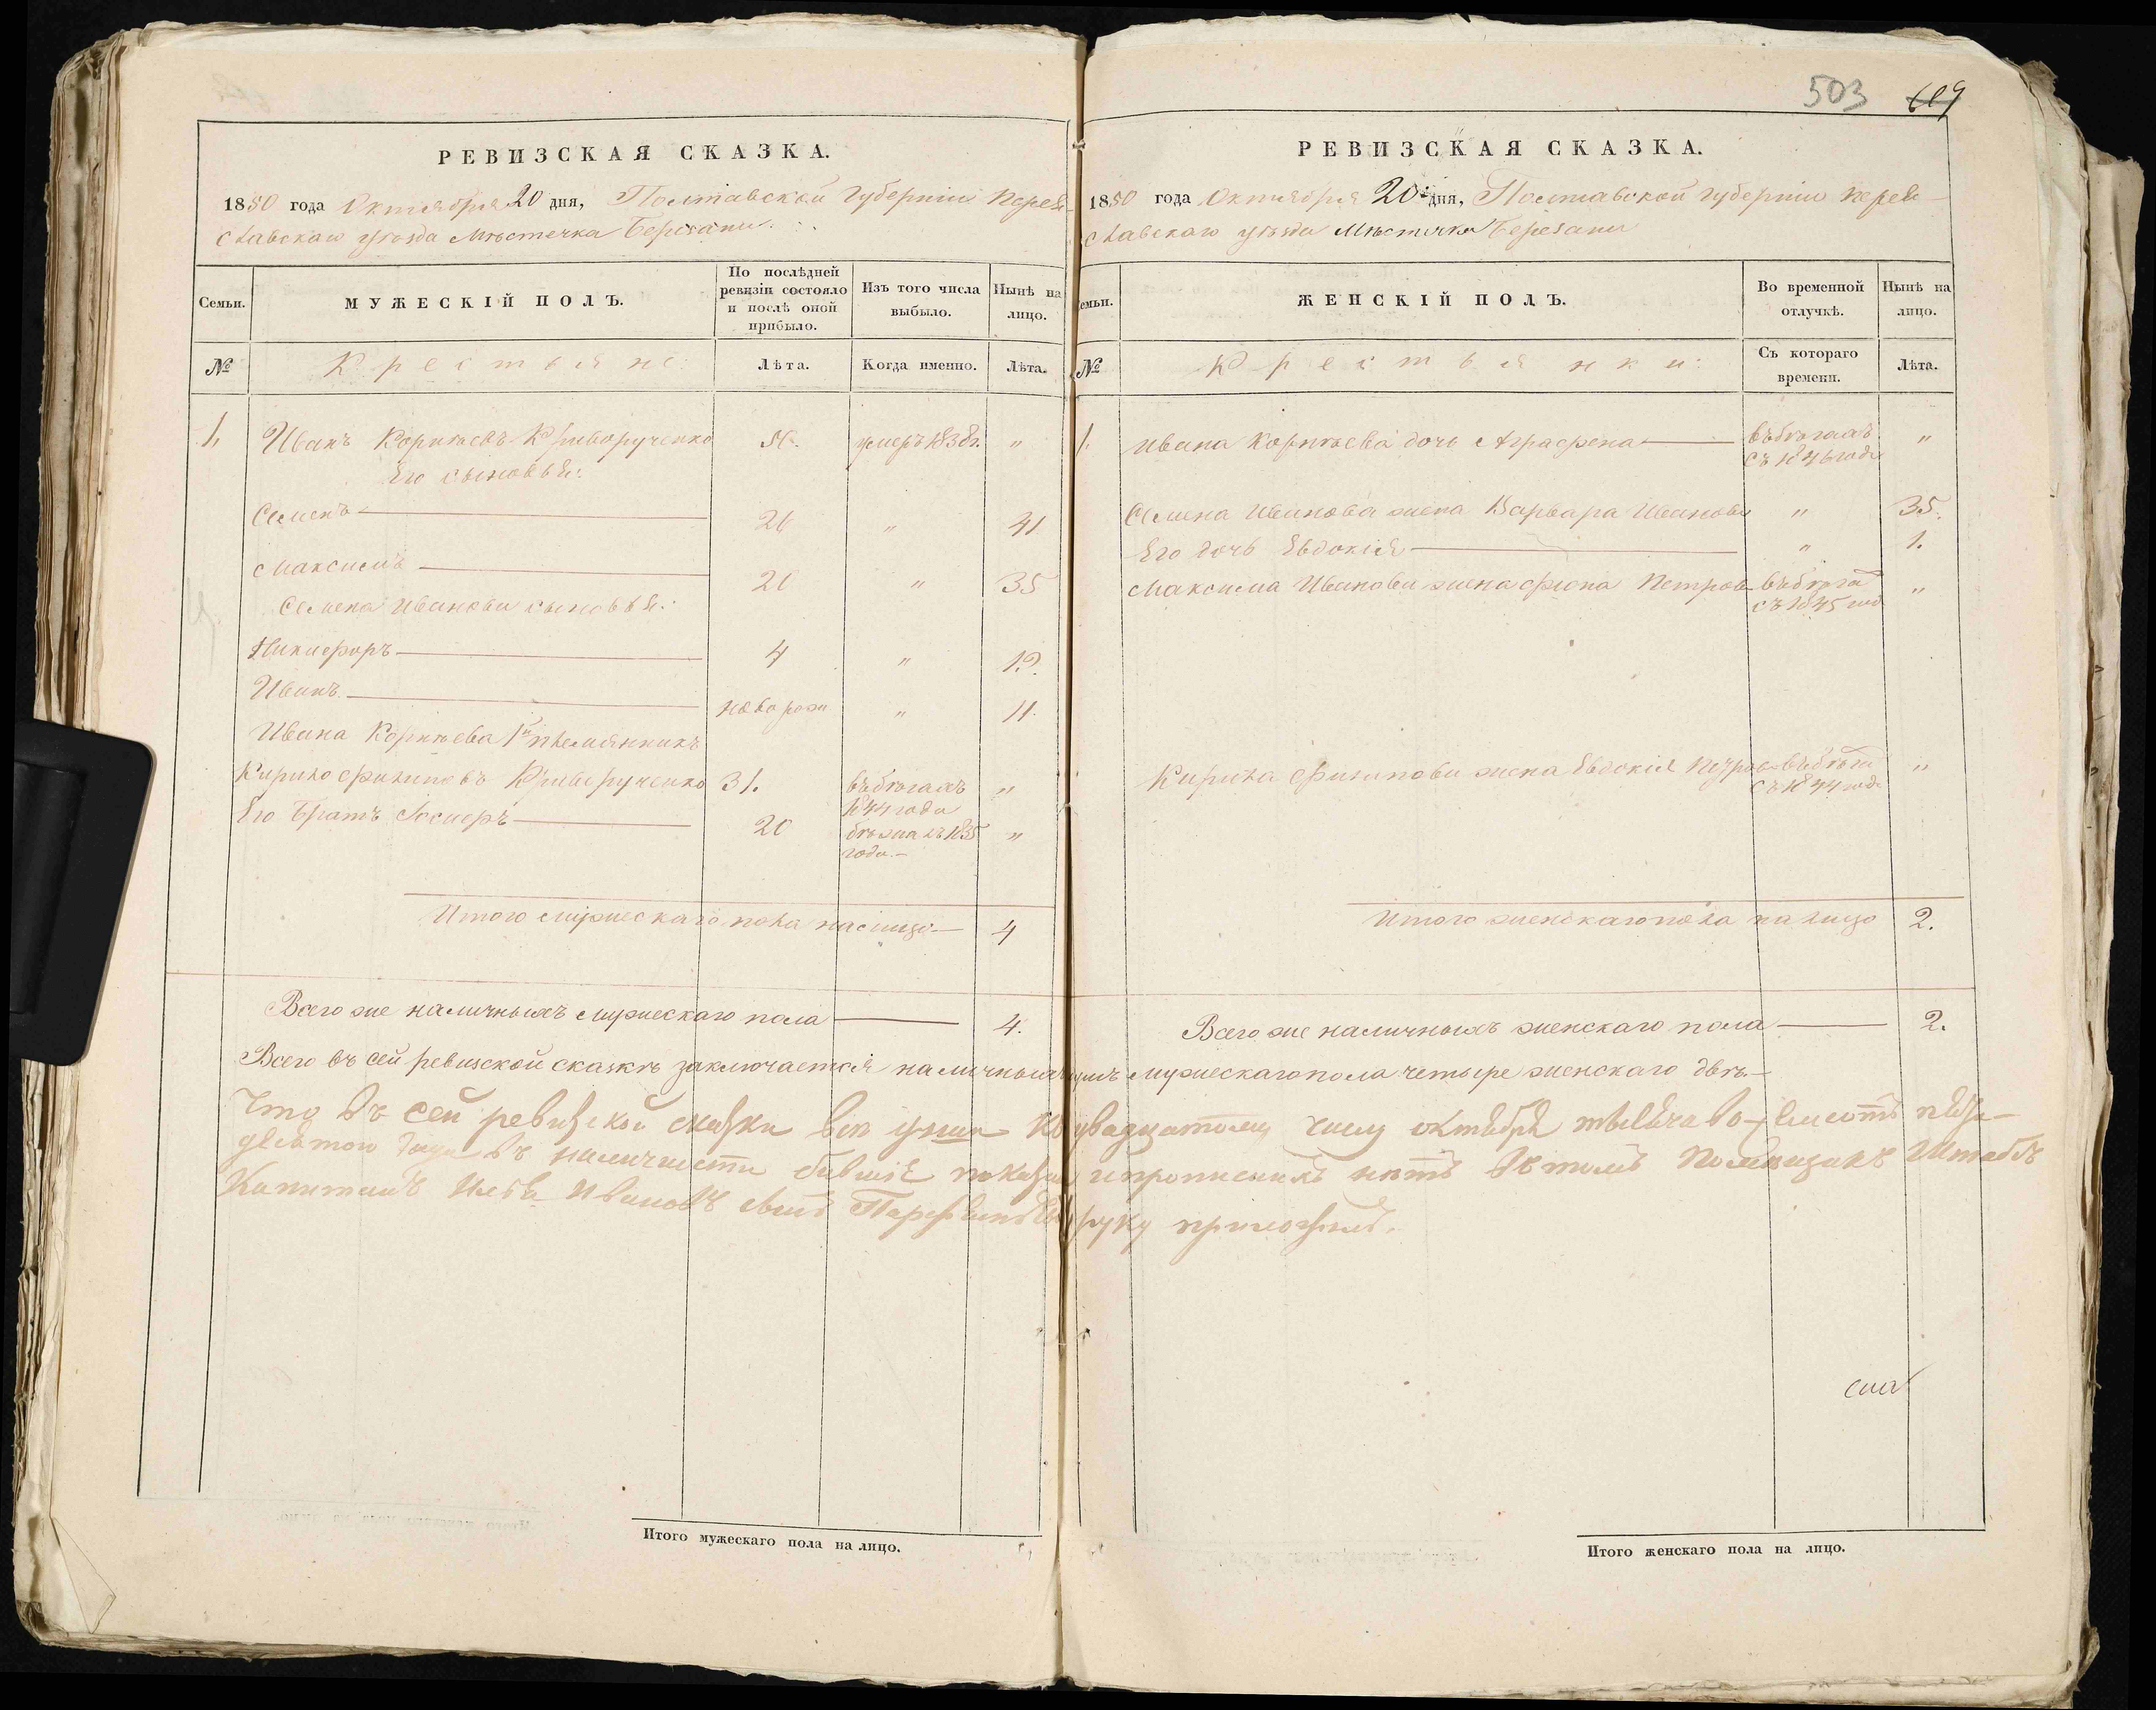 503 609
РЕВИЗСКАЯ СКАЗКА.
1850 года Октября 20 дня, Полтавской Губерніи Перея-
славскаго уѣзда Мѣстечка Березани.
Семьи.
МУЖЕСКІЙ ПОЛЪ.
По послѣдней ревизіи состояло и послѣ оной прибыло.
Изъ того числа выбыло.
Нынѣ на лицо.
№
Крестьяне:
Лѣта.
Когда именно.
Лѣта.
1. Иванъ Корнѣевъ Криворученко умеръ 1838 г. "
Его сыновья:
Семенъ 26 " 41
Максимъ 20 " 35
Семена Иванова сыновья:
Никифоръ 4 " 19.
Иванъ новорож " 11.
Ивана Корнѣева племянникъ
Кирило Филиповъ Криворученко 31. въ бѣгахъ 1844 года "
Его братъ Іосифъ 20 бѣжалъ 1835 года "
Итого мужескаго пола на лицо 4
Всего же наличныхъ мужескаго пола 4.
РЕВИЗСКАЯ СКАЗКА.
1850 года Октября 20 дня, Полтавской губерніи Перея-
славскаго уѣзда Мѣстечка Березани
Семьи.
ЖЕНСКІЙ ПОЛЪ.
Во временной отлучкѣ.
Нынѣ на лицо.
№
Крестьянки:
Съ котораго времени.
Лѣта.
1. Ивана Корнѣева дочь Аграфена въ бѣгахъ съ 1846 года "
Семена Иванова жена Варвара Иванова " 35.
Его дочь Евдокія " 1.
Максима Иванова жена Петров въ бѣгах съ 1845 год "
Кирила Филипова жена Евдокія Петров въ бѣгах съ 1844 года "
Итого женскаго пола на лицо 2.
Всего же наличныхъ женскаго пола 2.
Всего въ сей ревизской сказкѣ заключается наличныхъ душъ мужескаго пола четыре женскаго двѣ
Что въ сей ревизской сказки всѣ души къ двадцатому числу октября тысяча восемсотъ пядe-
десятого года въ наличности бывшіе показаны и прописныхъ нѣтъ въ томъ Помѣщикъ Штабсъ
Капитанъ Ивановъ сынъ руку приложилъ.
Итого мужескаго пола на лицо.
Итого женскаго пола на лицо.